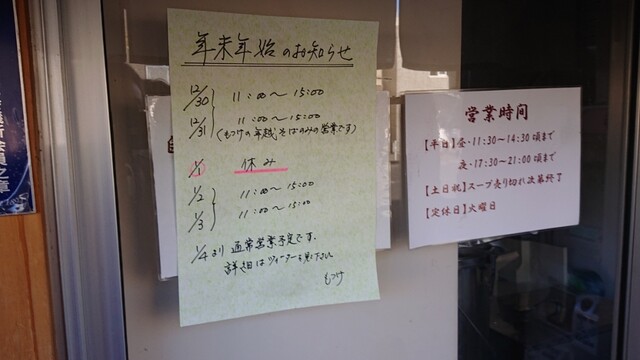 年末年始のお知らせ
12/30 11:00～15:00
12/31 11:00～15:00
(もつけの年越しそばのみの営業です)
1/1 休み
1/2 11:00～15:00
1/3 11:00～15:00
1/4より通常営業予定です。
詳細はツイッターを見て下さい
もつけ
営業時間
【平日】昼・11:30～14:30頃まで
夜・17:30～21:00頃まで
【土日祝】スープ売り切れ次第終了
【定休日】火曜日